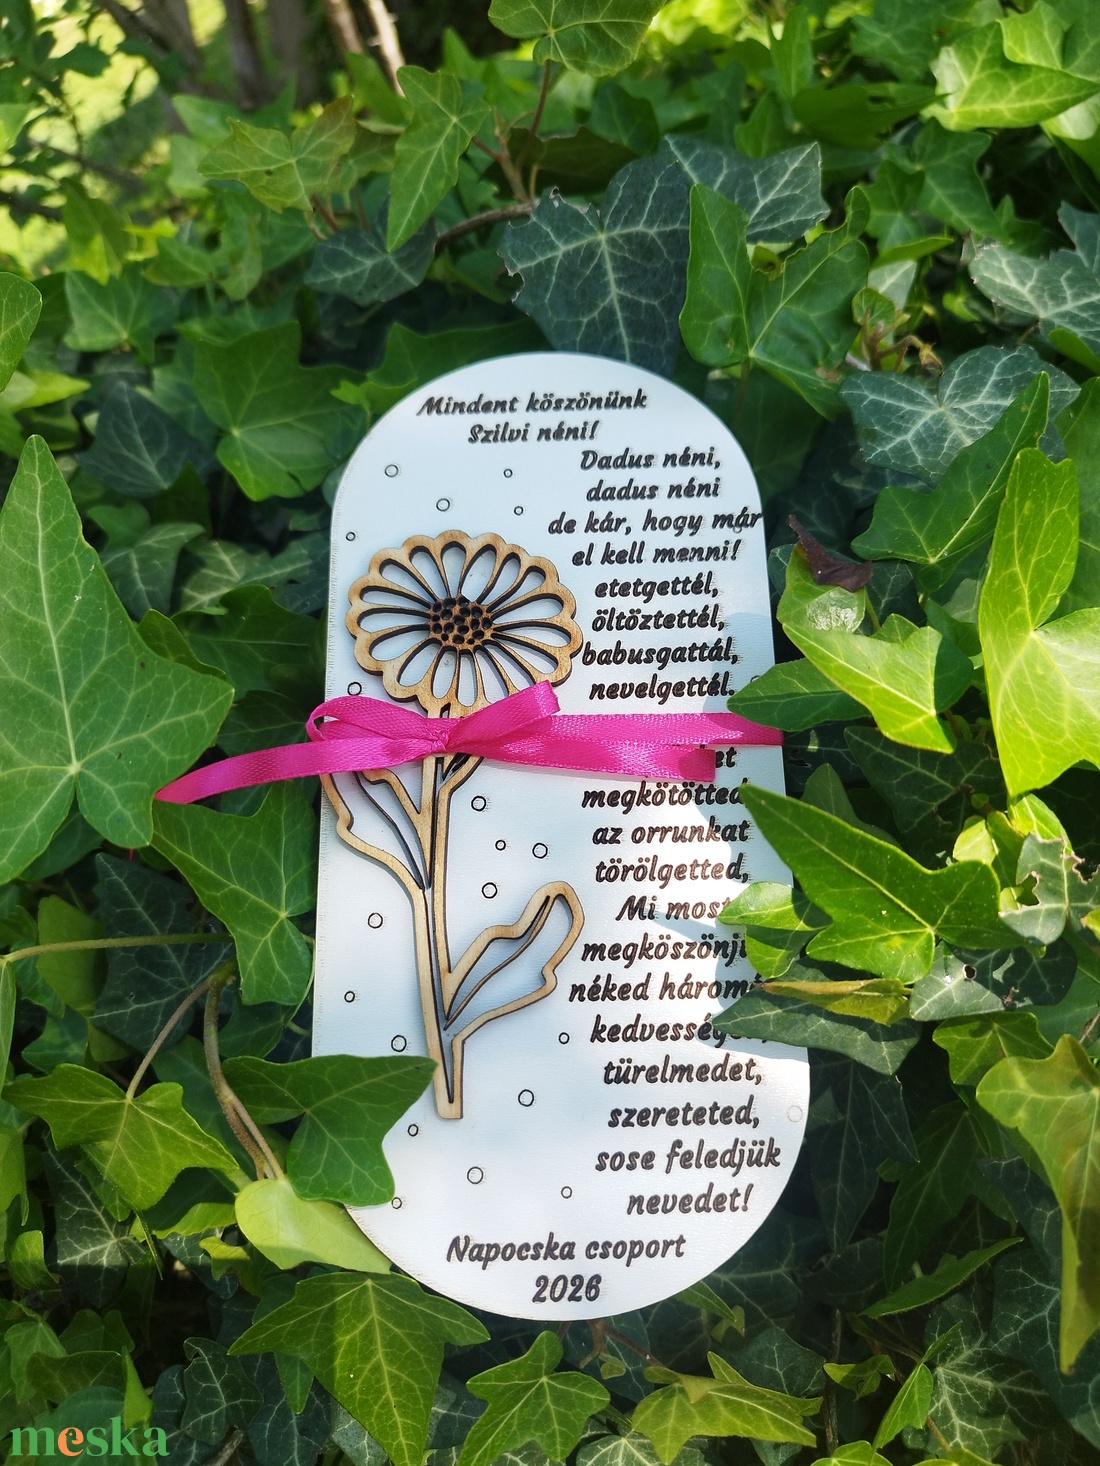 Mindent köszönünk
Szilvi néni!
Dadus néni,
dadus néni
de kár, hogy már
el kell menni!
etetgettél,
öltöztettél,
babusgattál,
nevelgettél.
megkötötted
az orrunkat
törölgetted,
Mi most
néked
türelmedet,
szereteted,
sose feledjük
nevedet!
Napocska csoport
2026
meska